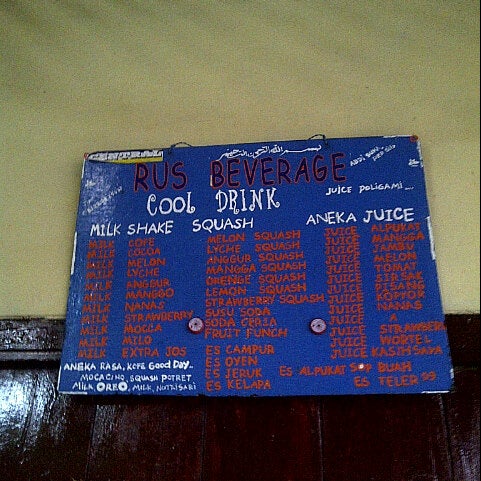 CENTRAL
بسم الله الرحمن الرحيم
RUS BEVERAGE
COOL DRINK
JUICE POLIGAMI...
MILK SHAKE
MILK COFE
MILK COCOA
MILK MELON
MILK LYCHE
MILK ANGGUR
MILK MANGGO
MILK NANAS
MILK STRAWBERRY
MILK MOCCA
MILK MILO
MILK EXTRA JOS
SQUASH
MELON SQUASH
LYCHE SQUASH
ANGGUR SQUASH
MANGGA SQUASH
ORENGE SQUASH
LEMON SQUASH
STRAWBERRY SQUASH
SUSU SODA
SODA CERIA
FRUIT FUNCH
ES CAMPUR
ES OYEN
ES JERUK
ES KELAPA
ANEKA JUICE
JUICE ALPUKAT
JUICE MANGGA
JUICE JAMBU
JUICE MELON
JUICE TOMAT
JUICE SIRSAK
JUICE PISANG
JUICE KOPYOR
JUICE NANAS
JUICE
JUICE STRAWBERI
JUICE WORTEL
JUICE KASIH SAYA
ES ALPUKAT
SOP BUAH
ES TELER 99
ANEKA RASA, KOPI GOOD DAY..
MOCACINO, SQUASH POTRET
MILK OREO, MILK, NUTRISARI